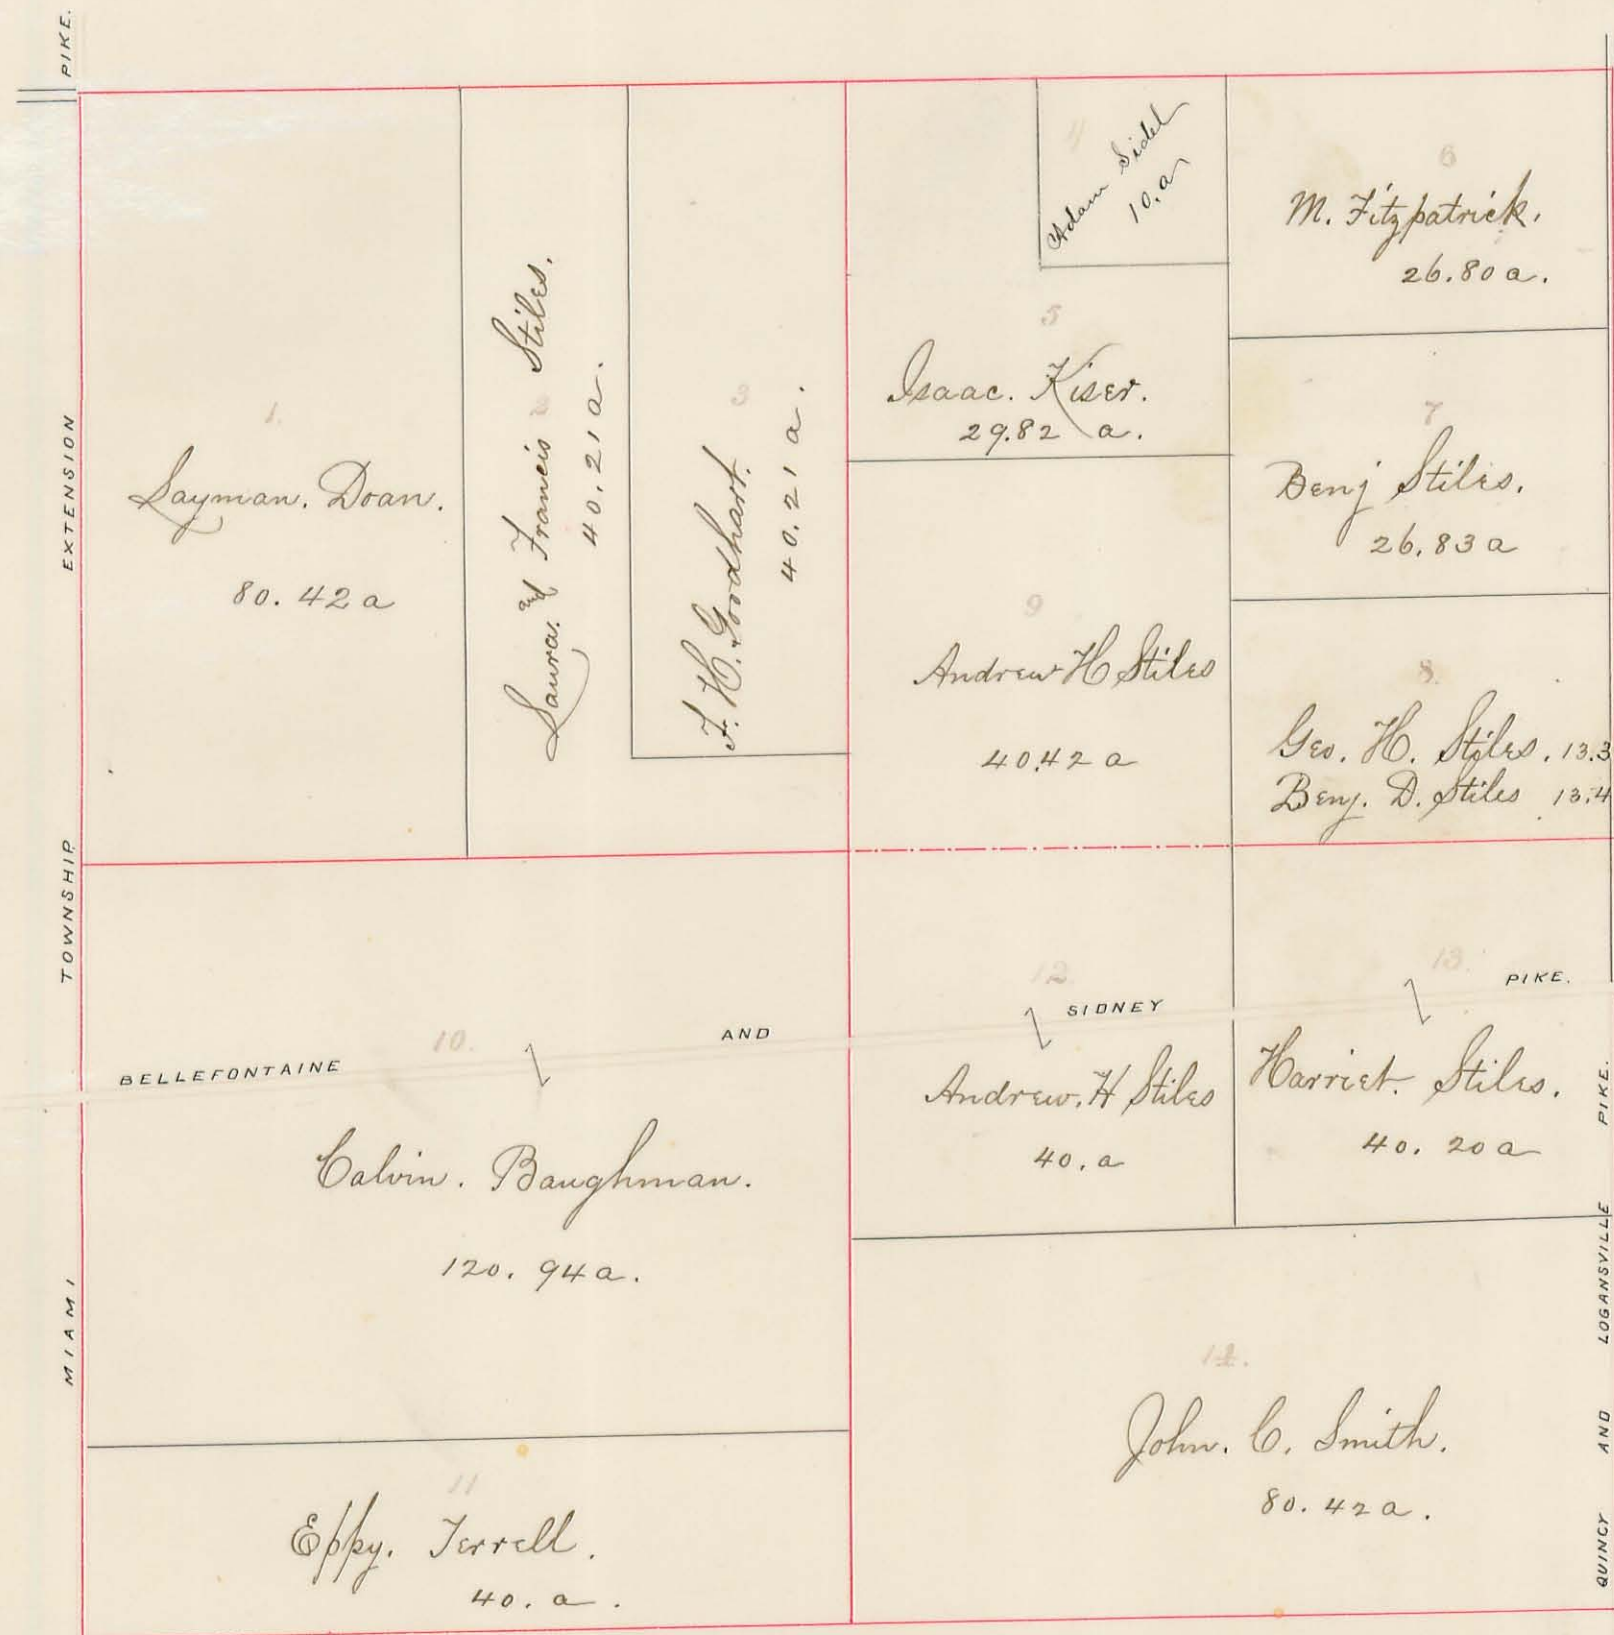 PIKE.
EXTENSION
TOWNSHIP
MIAMI
1.
Layman. Doan.
80.42 a
2
Laura. and Francis Stiles.
40.21 a.
3
F. H. Goodhart.
40.21 a.
4
Adam Sidel
10.a
5
Isaac. Kiser.
29.82 a.
6
M. Fitzpatrick.
26.80 a.
7
Benj Stiles.
26.83 a
8.
Geo. H. Stiles. 13.3
Benj. D. Stiles 13.4
9
Andrew H Stiles
40.42 a
BELLEFONTAINE AND SIDNEY PIKE.
10.
Calvin. Baughman.
120.94 a.
11
Eppy. Terrell.
40. a.
12
Andrew. H Stiles
40. a
13.
Harriet. Stiles.
40. 20 a
14.
John. C. Smith.
80.42 a.
QUINCY AND LOGANSVILLE PIKE.